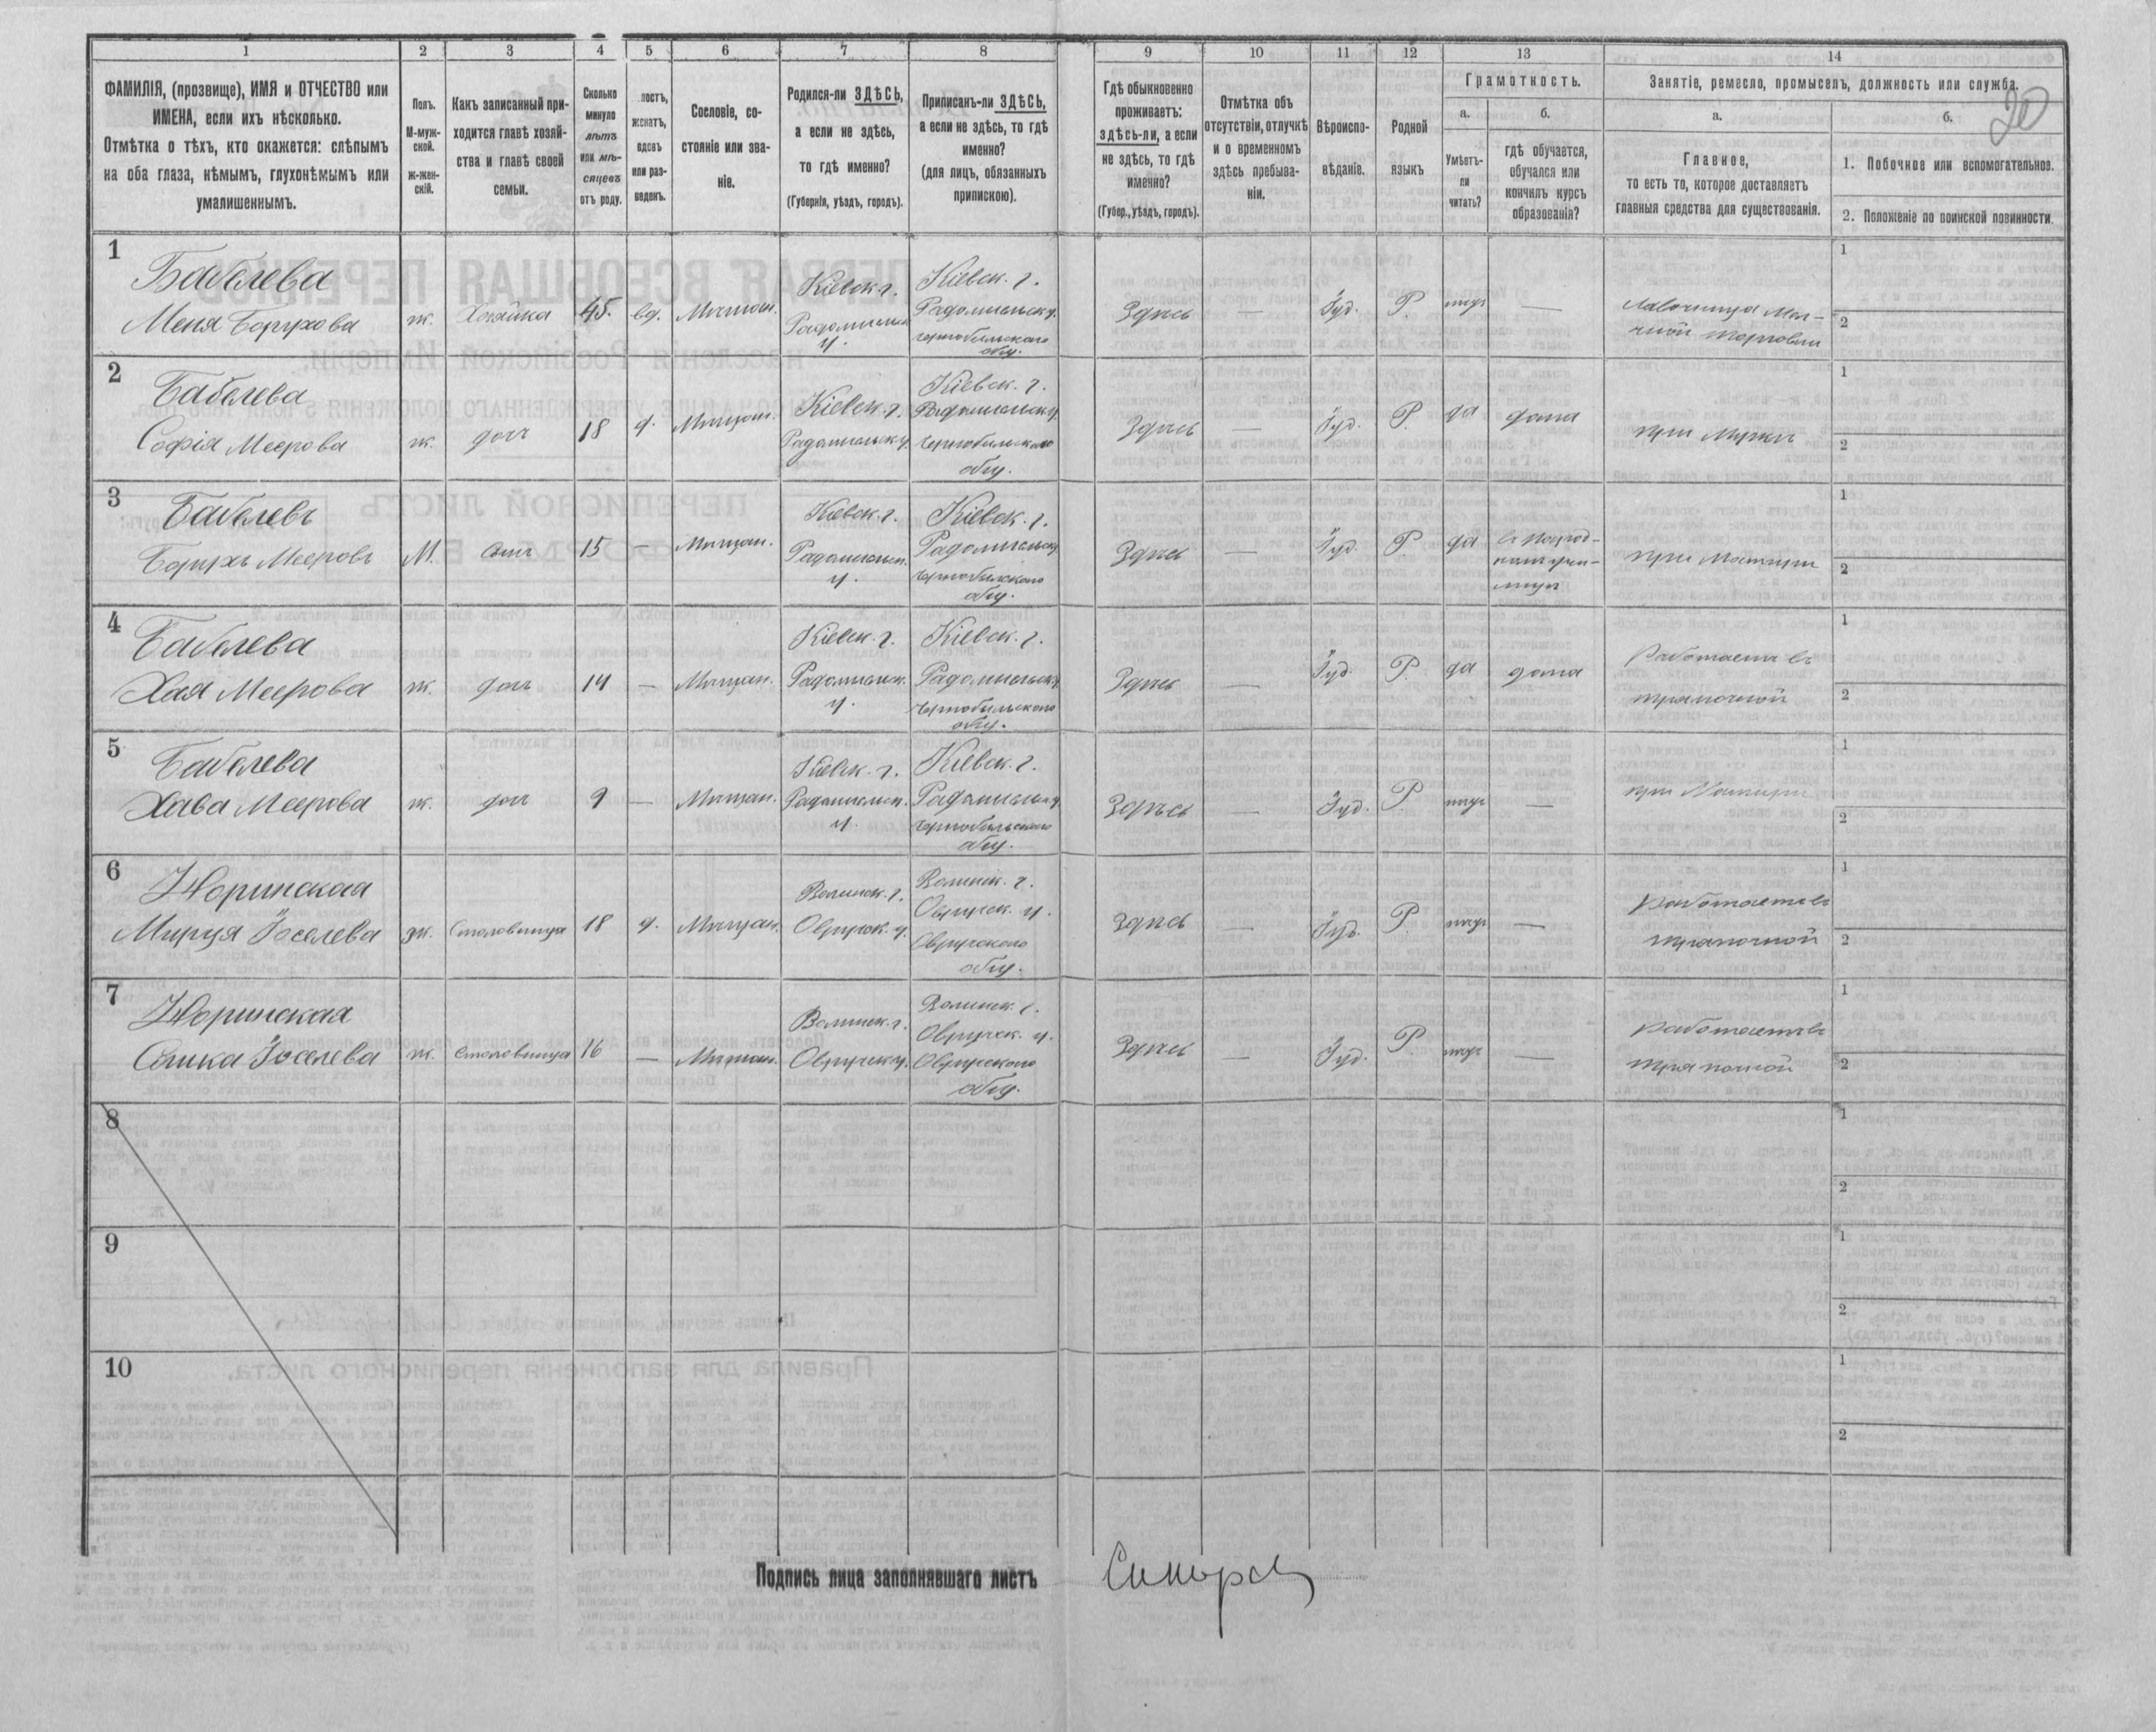 1 2 3 4 5 6 7 8 9 10 11 12 13 14
20
ФАМИЛІЯ, (прозвище), ИМЯ и ОТЧЕСТВО или
ИМЕНА, если ихъ нѣсколько.
Отмѣтка о тѣхъ, кто окажется: слѣпымъ
на оба глаза, нѣмымъ, глухонѣмымъ или
умалишеннымъ.
Полъ.
М-муж-
ской.
ж-жен-
скій.
Какъ записанный при-
ходится главѣ хозяй-
ства и главѣ своей
семьи.
Сколько
минуло
лѣтъ
или мѣ-
сяцевъ
отъ роду.
вдовъ
или раз-
веденъ.
Сословіе, со-
стояніе или зва-
ніе.
Родился-ли ЗДѢСЬ,
а если не здѣсь,
то гдѣ именно?
(Губернія, уѣздъ, городъ).
Приписанъ-ли ЗДѢСЬ,
а если не здѣсь, то гдѣ
именно?
(для лицъ, обязанныхъ
припискою).
Гдѣ обыкновенно
проживаетъ:
здѣсь-ли, а если
не здѣсь, то гдѣ
именно?
(Губер., уѣздъ, городъ).
Отмѣтка объ
отсутствіи, отлучкѣ
и о временномъ
здѣсь пребыва-
ніи.
Вѣроиспо-
вѣданіе.
Родной
языкъ
Грамотность.
а.
Умѣетъ-
ли
читать?
б.
гдѣ обучается,
обучался или
кончилъ курсъ
образованія?
Занятіе, ремесло, промыселъ, должность или служба.
а.
Главное,
то есть то, которое доставляетъ
главныя средства для существованія.
б.
1. Побочное или вспомогательное.
2. Положеніе по воинской повинности.
1
Бабелева
Меня Борухова
ж.
Хозяйка
45.
вд.
Мѣщан.
Кіевск. г.
Радомысльск
у.
Кіевск. г.
Радомысльск у.
Чернобыльскаго
общ.
Здѣсь
—
Іуд.
Р.
нѣтъ
—
торговли
1
2
2
Бабелева
Софія Меерова
ж.
дочь
18
д.
Мѣщан.
Кіевск. г.
Радомысльск у.
Кіевск. г.
Радомысльск у.
Чернобыльскаго
общ.
Здѣсь
—
Іуд.
Р.
да
дома
при
1
2
3
Бабелевъ
Борухъ Мееровъ
М.
сынъ
15
—
Мѣщан.
Кіевск. г.
Радомысльск.
у.
Кіевск. г.
Радомысльск у
Чернобыльскаго
общ.
Здѣсь
—
Іуд.
Р.
да
въ Народ-
номъ учи-
лищѣ
при Матери
1
2
4
Бабелева
Хая Меерова
ж.
дочь
14
—
Мѣщан.
Кіевск. г.
Радомысльск.
у.
Кіевск. г.
Радомысльск у
Чернобыльскаго
общ.
Здѣсь
—
Іуд.
Р.
да
дома
Работаетъ въ
тряпочной
1
2
5
Бабелева
Хава Меерова
ж.
дочь
9
—
Мѣщан.
Кіевск. г.
Радомысльск.
у.
Кіевск. г.
Радомысльск у.
Чернобыльскаго
общ.
Здѣсь
—
Іуд.
Р.
нѣтъ
—
при Матери
1
2
6
Норинская
Мирця Іоселева
ж.
Столовница
18
д.
Мѣщан.
Волынск. г.
Овручск. у.
Волынск. г.
Овручск. у.
Овручскаго
общ.
Здѣсь
—
Іуд.
Р.
нѣтъ
—
работаетъ въ
тряпочной
1
2
7
Норинская
Іоселева
ж.
Столовница
16
—
Мѣщан.
Волынск. г.
Овручск у.
Волынск. г.
Овручск. у.
Овручскаго
общ.
Здѣсь
—
Іуд.
Р.
нѣтъ
—
работаетъ въ
тряпочной
1
2
8
1
2
9
1
2
10
1
2
Подпись лица заполнявшаго листъ